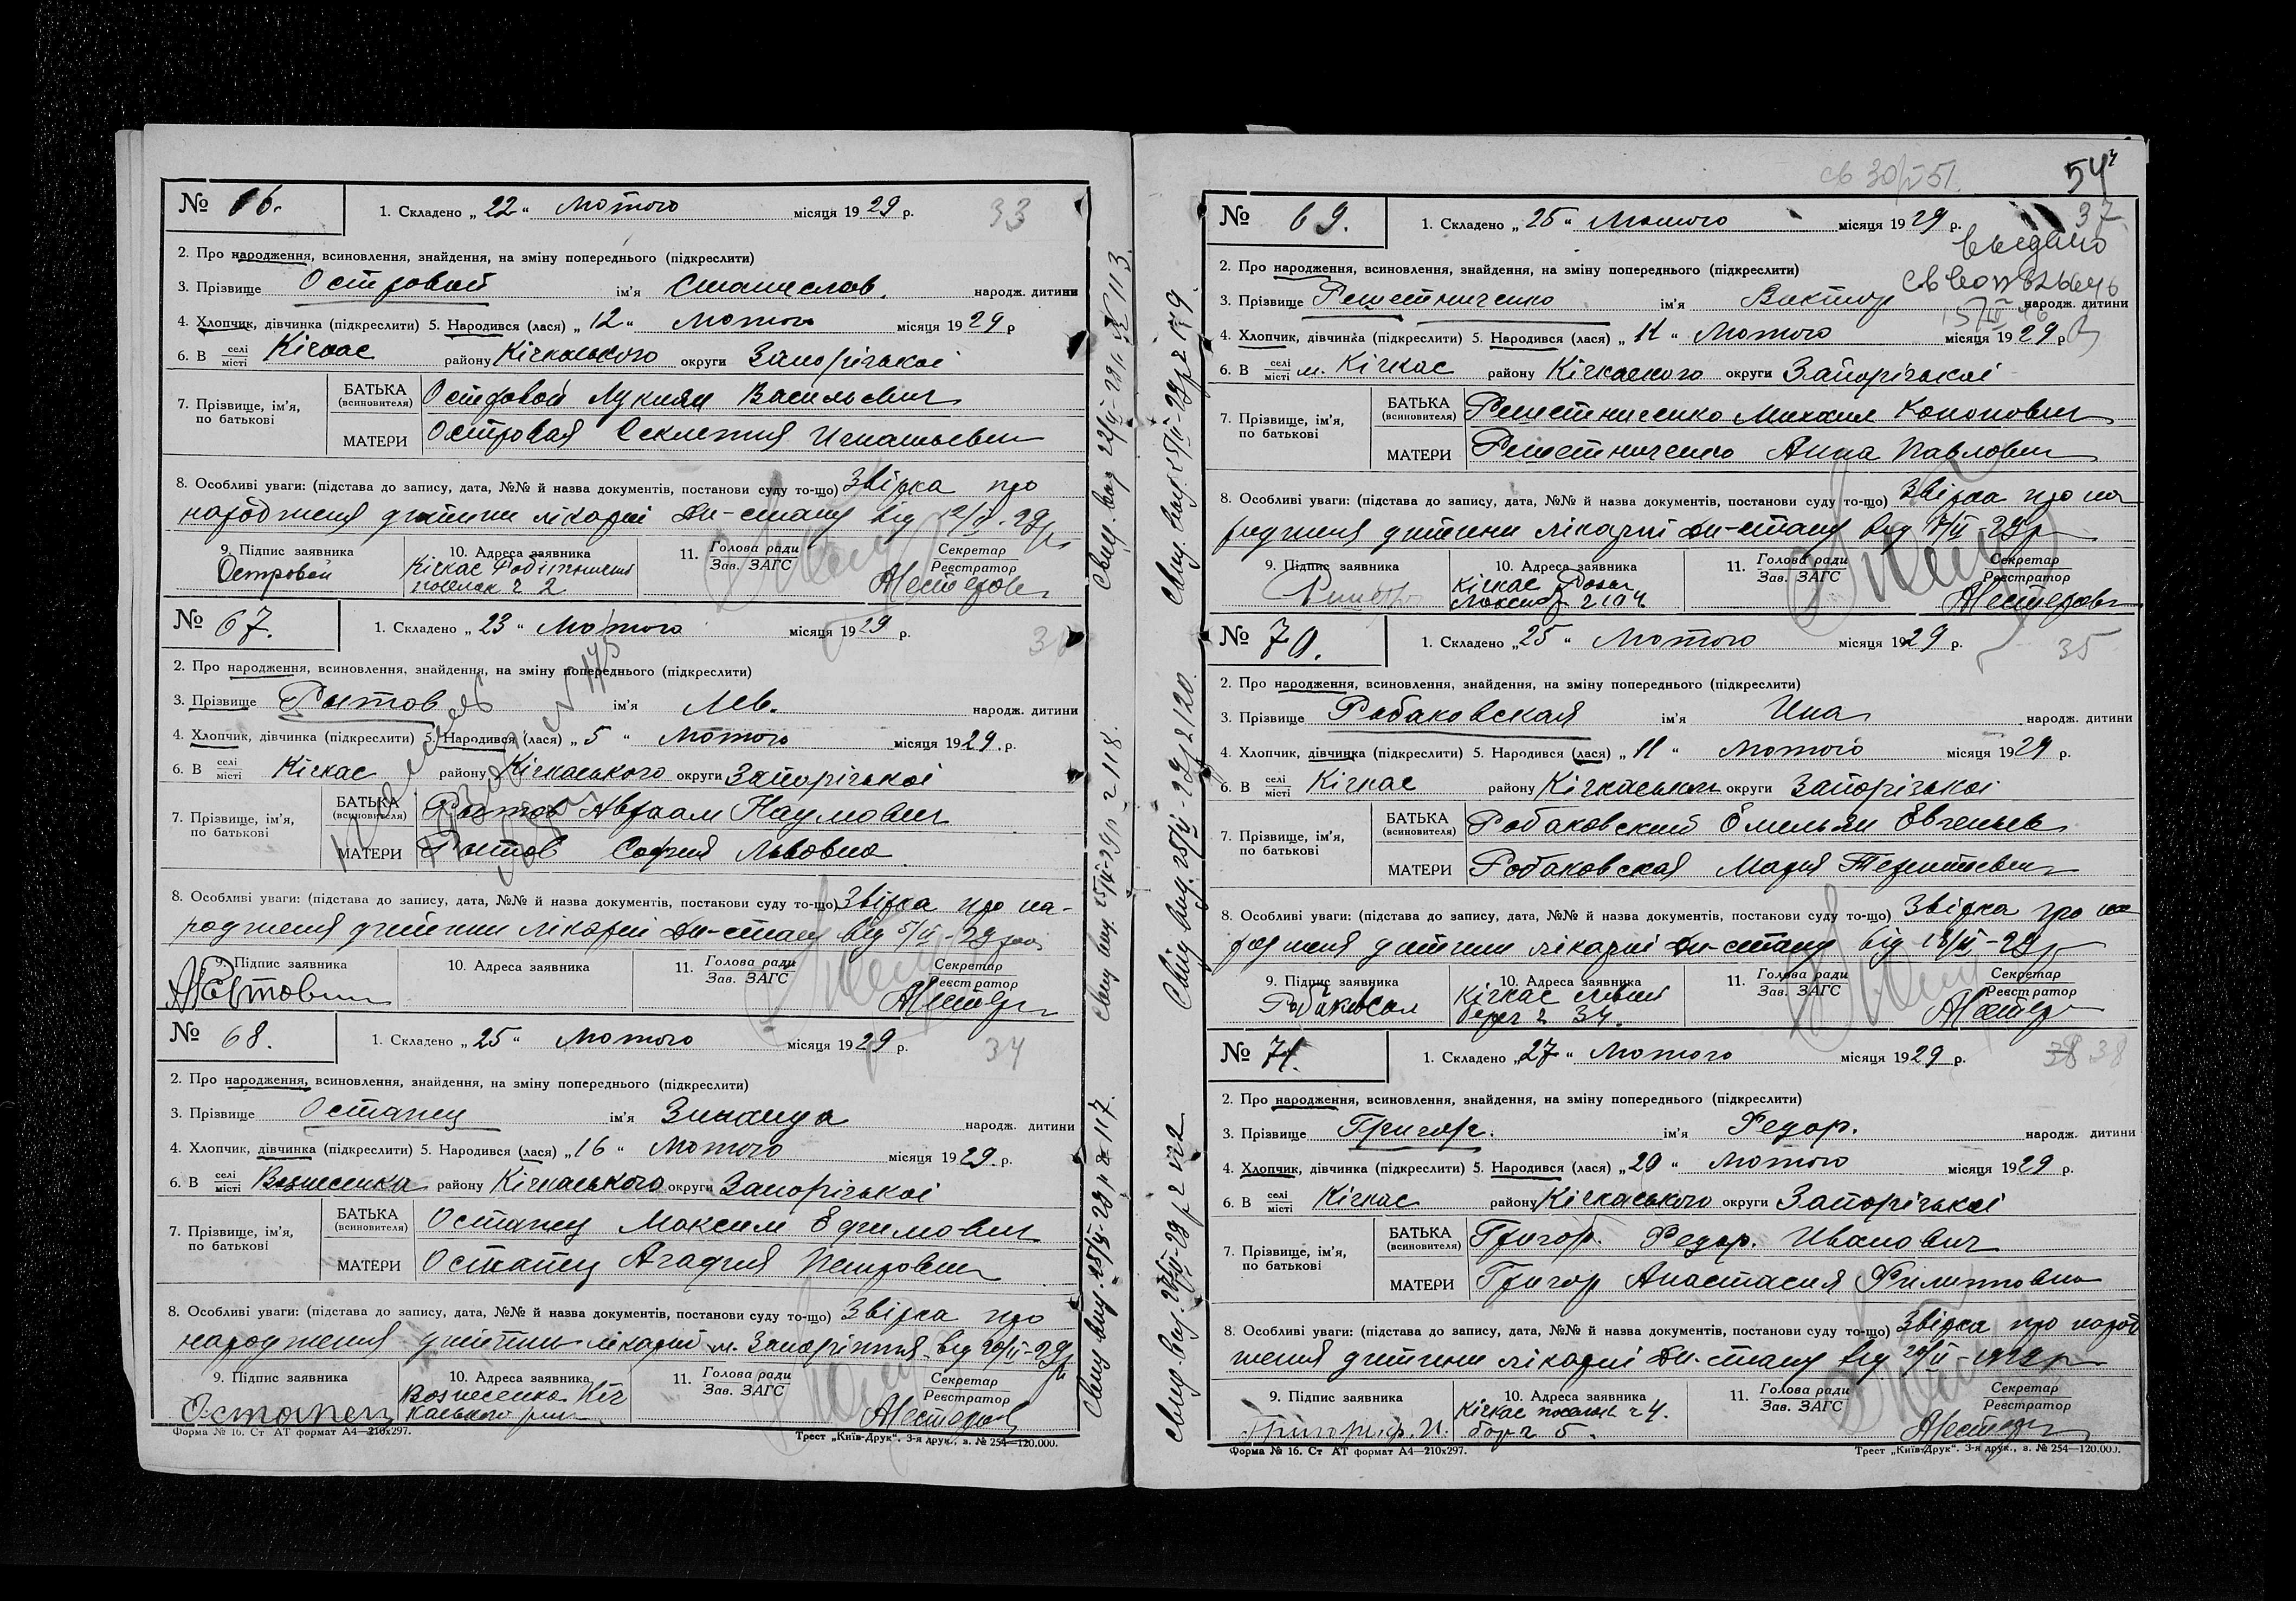 № 66.
1. Складено „22“ Лютого місяця 1929 р.
33
2. Про народження, всиновлення, знайдення, на зміну попереднього (підкреслити)
3. Прізвище Островой ім'я Станислав. народж. дитини
4. Хлопчик, дівчинка (підкреслити) 5. Народився (лася) „12“ Лютого місяця 1929 р
6. В селі місті Кічкас району Кічкаського округи Запорізькоі
7. Прізвище, ім'я, по батькові
БАТЬКА (всиновителя) Островой Лукиян Васильевич
МАТЕРИ Островая Секлетия Игнатьевн
8. Особливі уваги: (підстава до запису, дата, №№ й назва документів, постанови суду то-що) Звірка про
народженя дитини лікарні Дн-стану від 12/II-29р
9. Підпис заявника 10. Адреса заявника 11. Голова ради Зав. ЗАГС Секретар Реєстратор
Островой Кічкас
поселок ч 2
Свид. выд 22/II-29р № 113.
№ 67.
1. Складено „23“ Лютого місяця 1929 р.
2. Про народження, всиновлення, знайдення, на зміну попереднього (підкреслити)
3. Прізвище Ростов ім'я Лев. народж. дитини
4. Хлопчик, дівчинка (підкреслити) 5. Народився (лася) „5“ Лютого місяця 1929. р.
6. В селі місті Кічкас району Кічкаського округи Запорізькоі
7. Прізвище, ім'я, по батькові
БАТЬКА (всиновителя) Ростов Авраам Наумович
МАТЕРИ Ростов София Львовна
8. Особливі уваги: (підстава до запису, дата, №№ й назва документів, постанови суду то-що) Звірка про на-
родженя дитини лікарні Дн-стану від 5/II-29
9. Підпис заявника 10. Адреса заявника 11. Голова ради Зав. ЗАГС Секретар Реєстратор
№ 68.
1. Складено „25“ Лютого місяця 1929 р.
34
2. Про народження, всиновлення, знайдення, на зміну попереднього (підкреслити)
3. Прізвище Остапец ім'я Зинаида народж. дитини
4. Хлопчик, дівчинка (підкреслити) 5. Народився (лася) „16“ Лютого місяця 1929. р.
6. В селі місті Вознесенка району Кічкаського округи Запорізькоі
7. Прізвище, ім'я, по батькові
БАТЬКА (всиновителя) Остапец Максим Ефимович
МАТЕРИ Остапец Агафия Петровн
8. Особливі уваги: (підстава до запису, дата, №№ й назва документів, постанови суду то-що) Звірка про
народженя дитини лікарні м. Запоріжжя від 20/II-29р
9. Підпис заявника 10. Адреса заявника 11. Голова ради Зав. ЗАГС Секретар Реєстратор
Остапец Вознесенка Кіч
каського
Форма № 16. Ст АТ формат А4—210х297.
Трест „Київ-Друк“. 3-я друк., з. № 254—120.000.
54
37
св 30/V 51.
№ 69.
1. Складено „25“ Лютого місяця 1929 р.
выдано
2. Про народження, всиновлення, знайдення, на зміну попереднього (підкреслити)
3. Прізвище Решетниченко ім'я Виктор народж. дитини
4. Хлопчик, дівчинка (підкреслити) 5. Народився (лася) „11“ Лютого місяця 1929 р
6. В селі місті м. Кічкас району Кічкаского округи Запорізькоі
7. Прізвище, ім'я, по батькові
БАТЬКА (всиновителя) Решетниченко Михаил Кононович
МАТЕРИ Решетниченко Анна Павловн
8. Особливі уваги: (підстава до запису, дата, №№ й назва документів, постанови суду то-що) Звірка про на
родженя дитини лікарні Дн-стану від
9. Підпис заявника 10. Адреса заявника 11. Голова ради Зав. ЗАГС Секретар Реєстратор
Кічкас
№ 70.
1. Складено „25“ Лютого місяця 1929 р.
35
2. Про народження, всиновлення, знайдення, на зміну попереднього (підкреслити)
3. Прізвище Рабаковская ім'я Ина народж. дитини
4. Хлопчик, дівчинка (підкреслити) 5. Народився (лася) „11“ Лютого місяця 1929 р.
6. В селі місті Кічкас району Кічкаськ округи Запорізькоі
7. Прізвище, ім'я, по батькові
БАТЬКА (всиновителя) Рабаковский Емельян Евгеньев
МАТЕРИ Рабаковская Мария Терентьевн
8. Особливі уваги: (підстава до запису, дата, №№ й назва документів, постанови суду то-що) Звірка про на
родженя дитини лікарні Дн-стану від 18/II-29р
9. Підпис заявника 10. Адреса заявника 11. Голова ради Зав. ЗАГС Секретар Реєстратор
Кічкас
34.
№ 71.
1. Складено „27“ Лютого місяця 1929 р.
38 38
2. Про народження, всиновлення, знайдення, на зміну попереднього (підкреслити)
3. Прізвище Григор. ім'я Федор. народж. дитини
4. Хлопчик, дівчинка (підкреслити) 5. Народився (лася) „20“ Лютого місяця 1929 р.
6. В селі місті Кічкас району Кічкаського округи Запорізькоі
7. Прізвище, ім'я, по батькові
БАТЬКА (всиновителя) Григор. Федор. Иванович
МАТЕРИ Григор Анастасия Филиповна
8. Особливі уваги: (підстава до запису, дата, №№ й назва документів, постанови суду то-що) Звірка про народ
женя дитини лікарні Дн-стану від
9. Підпис заявника 10. Адреса заявника 11. Голова ради Зав. ЗАГС Секретар Реєстратор
Кічкас поселок ч 4.
Форма № 16. Ст АТ формат А4—210х297.
Трест „Київ-Друк“. 3-я друк., з. № 254—120.000.